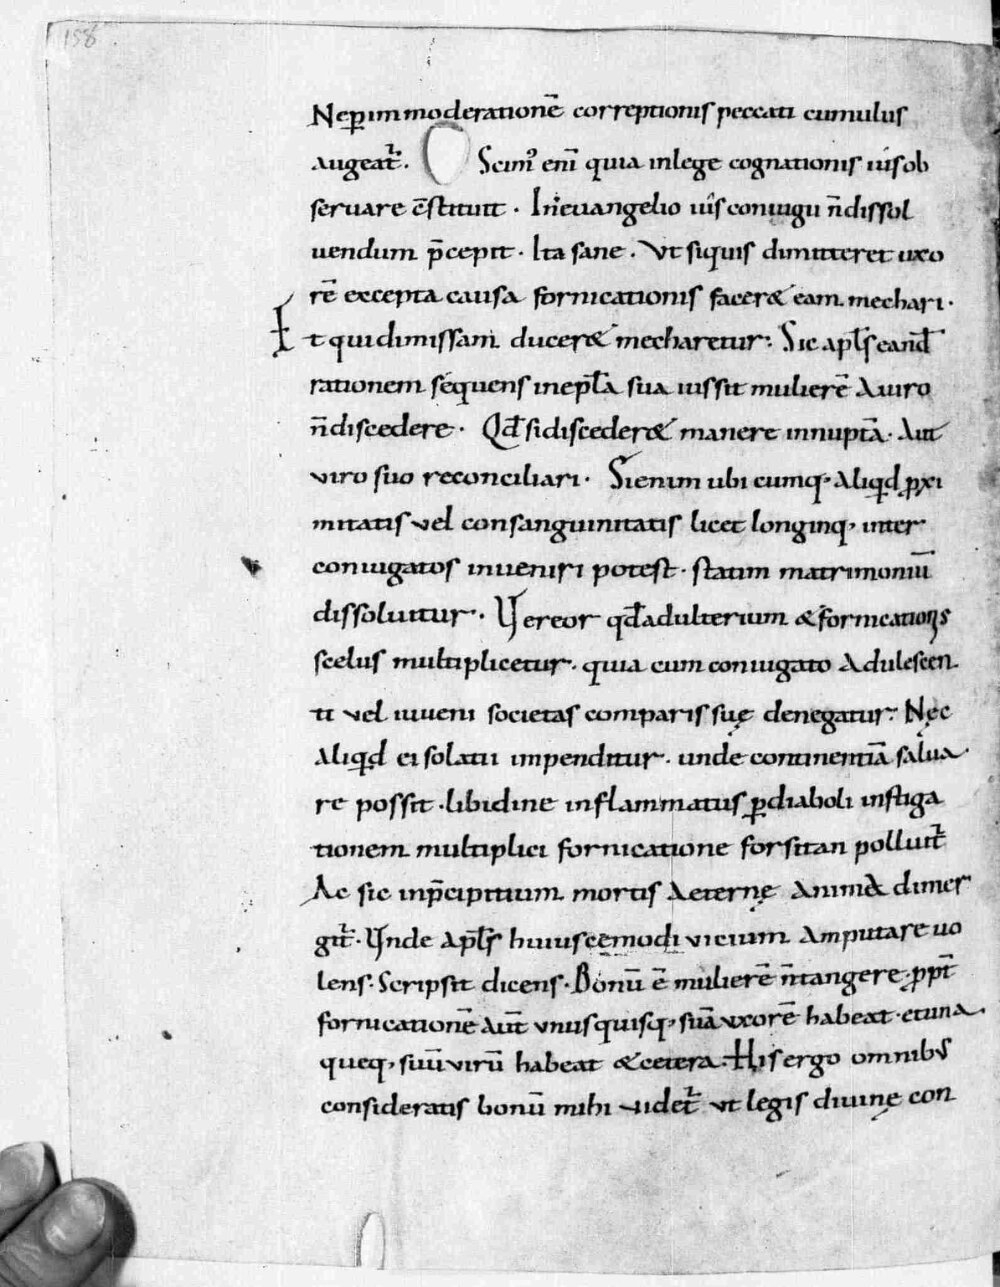 158
Neꝑimmoderationē correptionis peccati cumulus
augeat̄. Scim᾽ eni̅ quia inlege cognationis iusob
seruare c̄stituit · In euangelio uiṡ coniugii n̄dissol
uendum p̄cepit · Ita sane . Vt siquis dimitteret uxo
rē excepta causa fornicationis facer& eam mechari ·
Et quidimissam ducer& mecharetur. Sic apl̄s eand̄
rationem sequens inepl̄a sua iussit mulierē a uiro
n̄discedere · Qd̄ sidisceder& manere innuptā · Aut
viro suo reconciliari · Si enim ubi cumq; aliqd̄ ꝓxi
mitatis vel consanguinitatis licet longinq; inter
coniugatos inueniri potest · statim matrimoniū
dissoluitur · Vereor qd̄ adulterium & fornicationis
scelus multiplicetur. quia cum coniugato adulescen
ti vel iuueni societas comparis suę denegatur. Nęc
aliqd̄ ei solatii impenditur · unde continentiā salua
re possit · libidine inflammatus ꝑdiaboli instiga
tionem multiplici fornicatione forsitan polluit̄
Ac sic inp̄cipitium mortis aeternę animā dimer
git̄ · Vnde apl̄s huiuscemodi vicium amputare uo
lens · Scripsit dicens · Bonū ē mulierē n̄tangere · ꝓpt̄
fornicationē aūt vnusquisq; suā vxorē habeat · etuna
queq; suū virū habeat & cetera · His ergo omnibus
consideratis bonū mihi videt̄ vt legis diuinę con